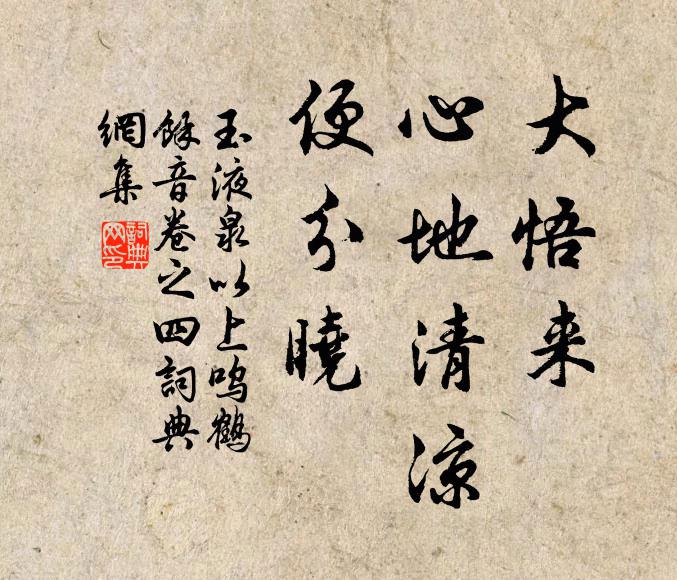 大悟来
心地清凉
便分曉
玉液泉以上鸣鶴
餘音卷之四詞典
網集
詞典
网印